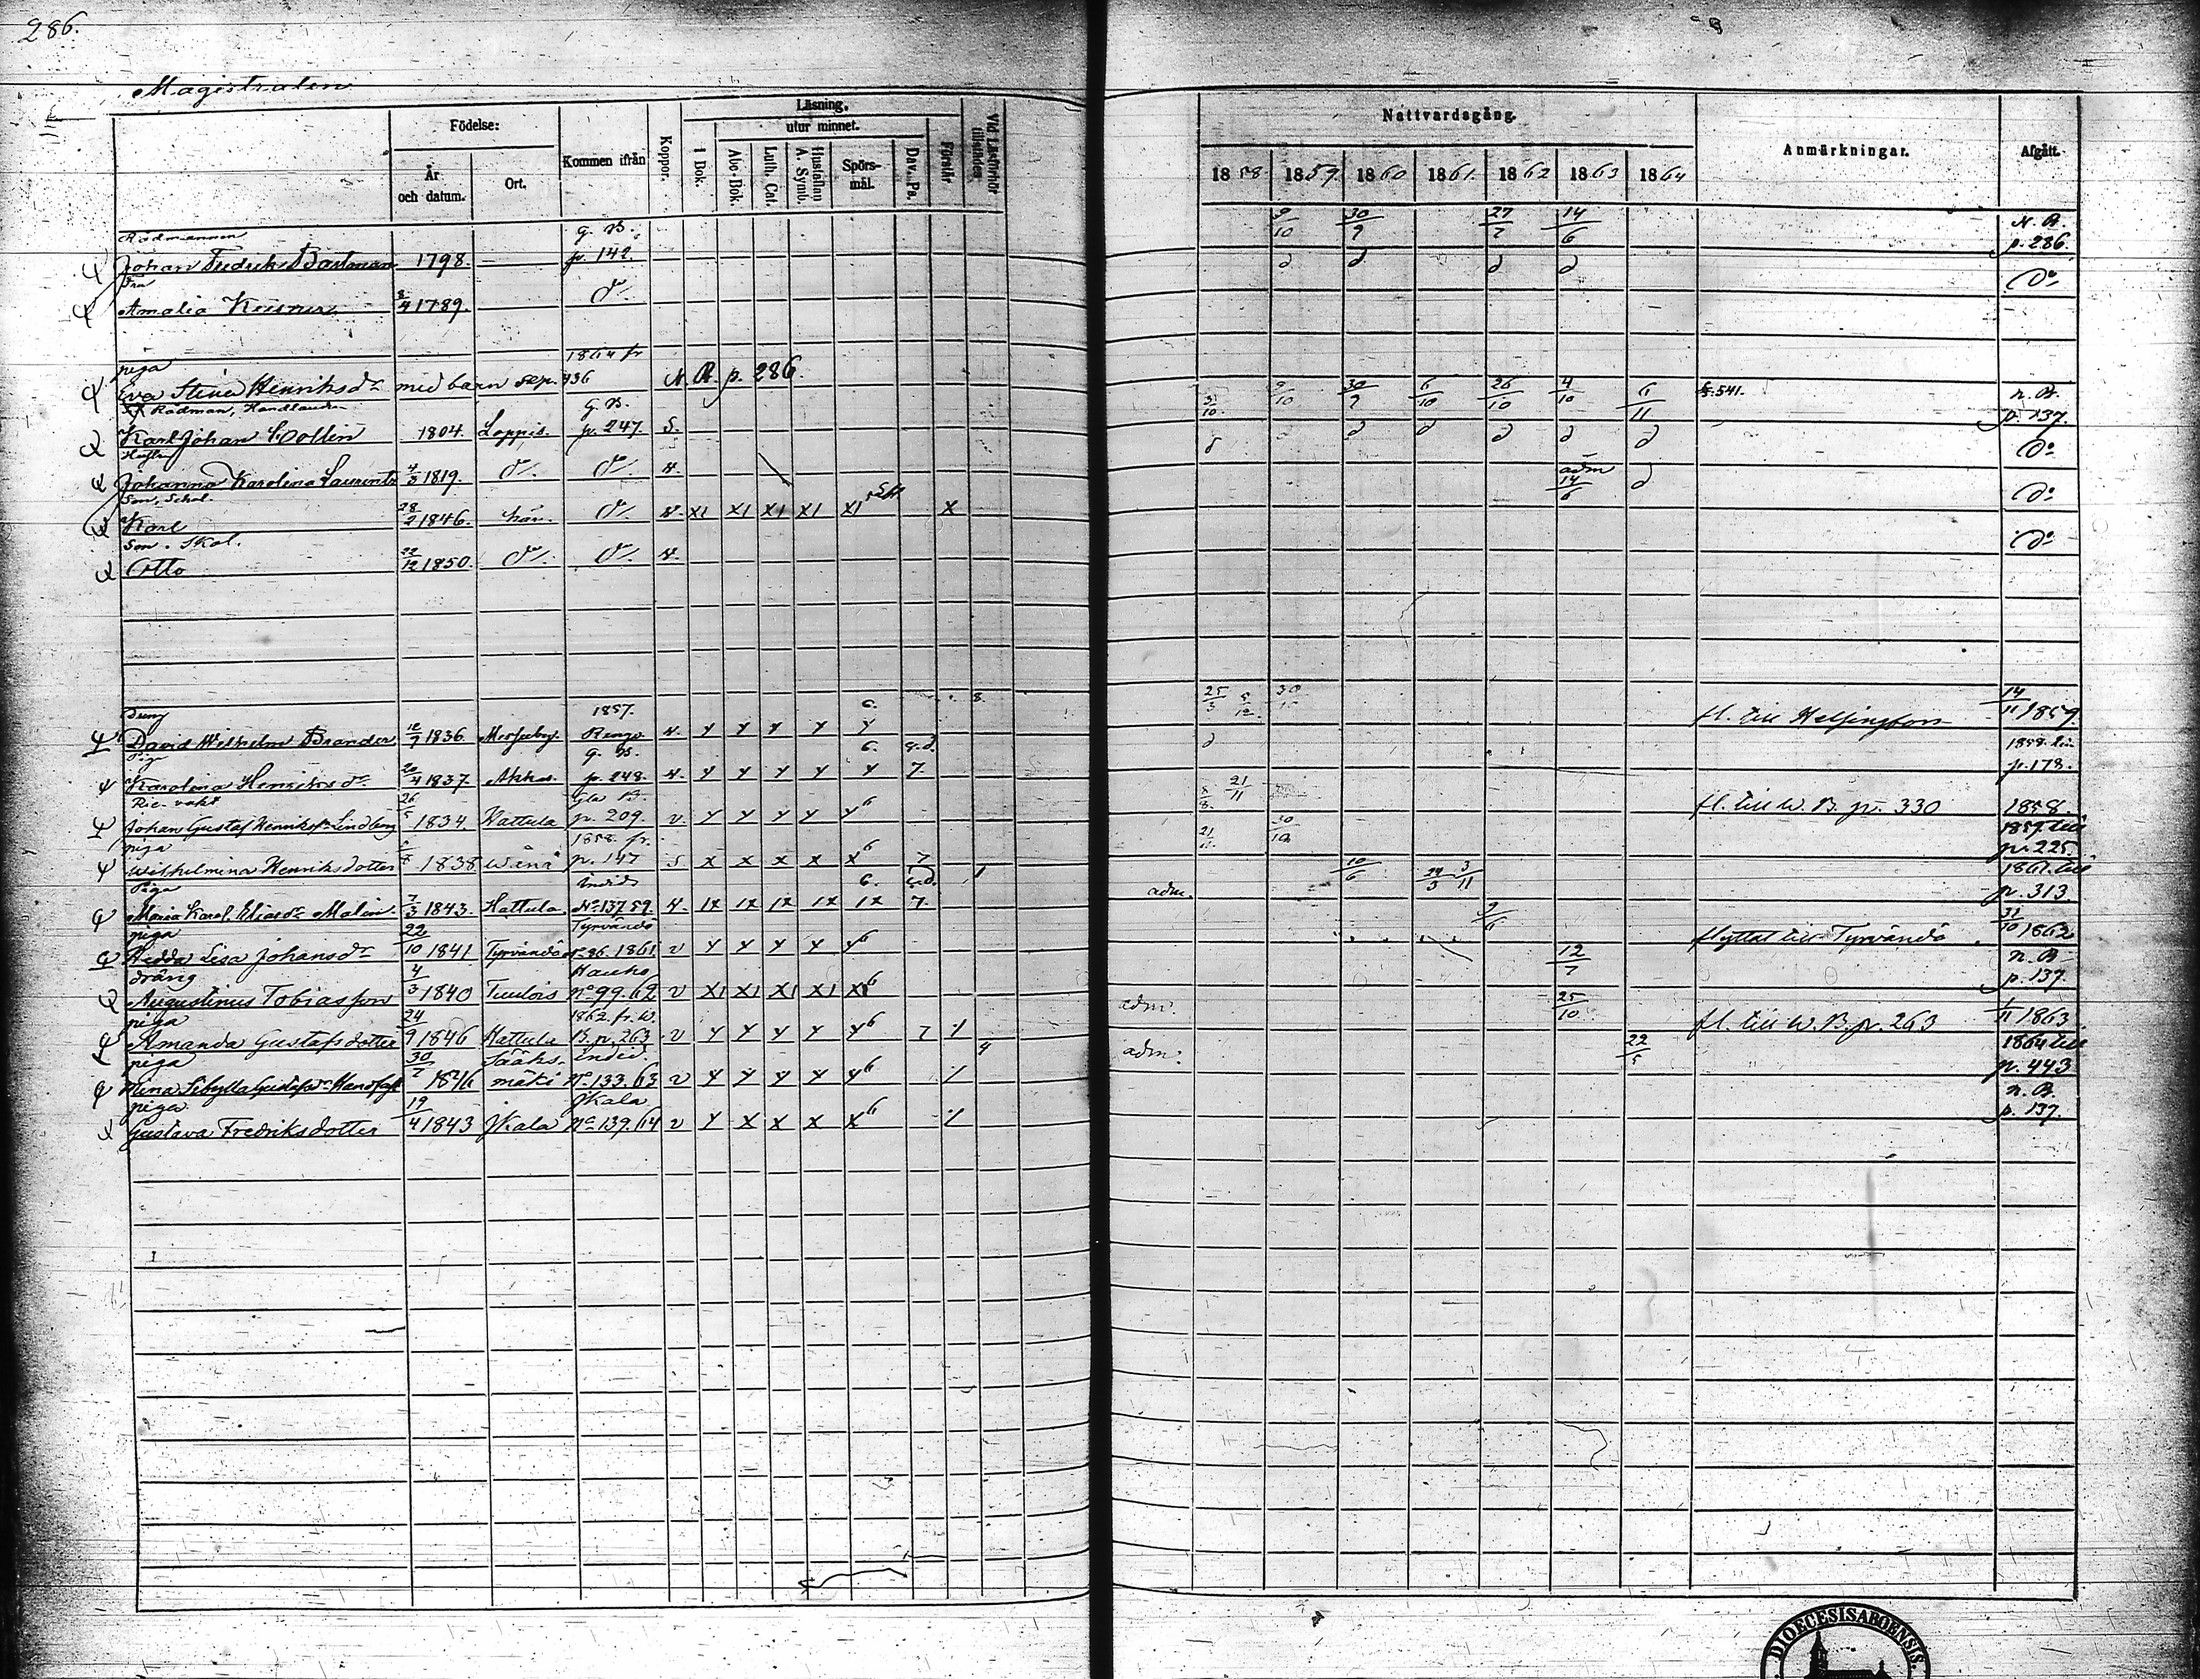 286.
Magistraten
Födelse:
År och datum.
Ort.
Kommen ifrån
Koppor.
Läsning.
utur minnet.
I Bok.
Abc-Bok.
Luth. Cat.
Hustaflan A. Symb.
Spörsmål.
Dav. Ps.
Förstår
Vid Läsförhör tillstädes
Nattvardsgång.
1858. 1859. 1860 1861. 1862 1863 1864
Anmärkningar.
Afgått.
Rådmannen g. B. 9/10 30/9 27/7 14/6 N. B.
Johan Fredrik Bartman 1798. — p. 142. p. 286.
Fru
Amalia 8/4 1789. do do
piga 1864 fr
Eva Stina Henriksdr med barn sep. 436 N. B. p. 286.
Rådman, Handlanden g. B. 3/10. 9/10 30/9 6/10 26/10 4/10 6/11 541. n. B.
Karl Johan Collin 1804. Loppis. p. 247. S. p. 137.
Hustru
Johanna Karolina Laurentz 4/3 1819. do do v. do
Son, Skol. adm 14/6
Karl 28/2 1846. här. do v. XI XI XI XI XI X do
Son. Skol.
Otto 22/12 1850. do do v. do
Dreng 1857. 6. 8. 25/3 5/12 30 fl. till Helsingfors 14/11 1859.
David Wilhelm Brander 12/7 1836. Messuby Rengo v. Y Y Y Y Y
Piga g. B. 6. g.d. 1858. till
Karolina Henriksdr 20/4 1837. Akkas p. 248. v. Y Y Y Y Y 7. p. 178.
26/5 Gla B. 8/8 21/11 fl. till W. B. p. 330 1858
Johan Gustaf Henrikss. Lindberg 1834. Hattula p. 209. v. Y Y Y Y Y6
piga 1858. fr. 21 30/10 1859. till
Wilhelmina Henriksdotter 1838 Wånå p. 147 S X X X X X6 7 p. 225
Piga Indid 6. g.d. 1 adm. 10/6 24/3 3/11 1861. till
Maria Karol. Eliasdr Malin 7/3 1843. Hattula No 137.59. v. 1X 1X 1X 1X 1X 7. p. 313.
piga 22/10 Tyrvändö 9/6 flyttat till Tyrvändö 31/10 1862
Hedda Lisa Johansdr 1841 Tyrvändö No 26. 1861. v Y Y Y Y Y6
dräng 4/3 Hauho 12/7 n. B.
Augustinus Tobiasson 1840 Tuulois No 99. 62 v XI XI XI XI X6 p. 137.
piga 24/9 1862. fr. W. adm. 25/10 fl. till W. B. p. 263 1/11 1863
Amanda Gustafsdotter 1846 Hattula B. p. 263 v Y Y Y Y Y6 7 ⁒
piga 30/7 Jääks- Indid. 4 adm: 22/5 1864 till
Mina Sibylla Gustafsdr 1846 mäki No. 133. 63 v Y Y Y Y Y6 ⁒ p. 443
piga 19/4 Jkala n. B.
Gustava Fredriksdotter 1843 Jkala No 139. 64 v Y X X X X6 ⁒ p. 137.
DIOECESIS ABOENSIS